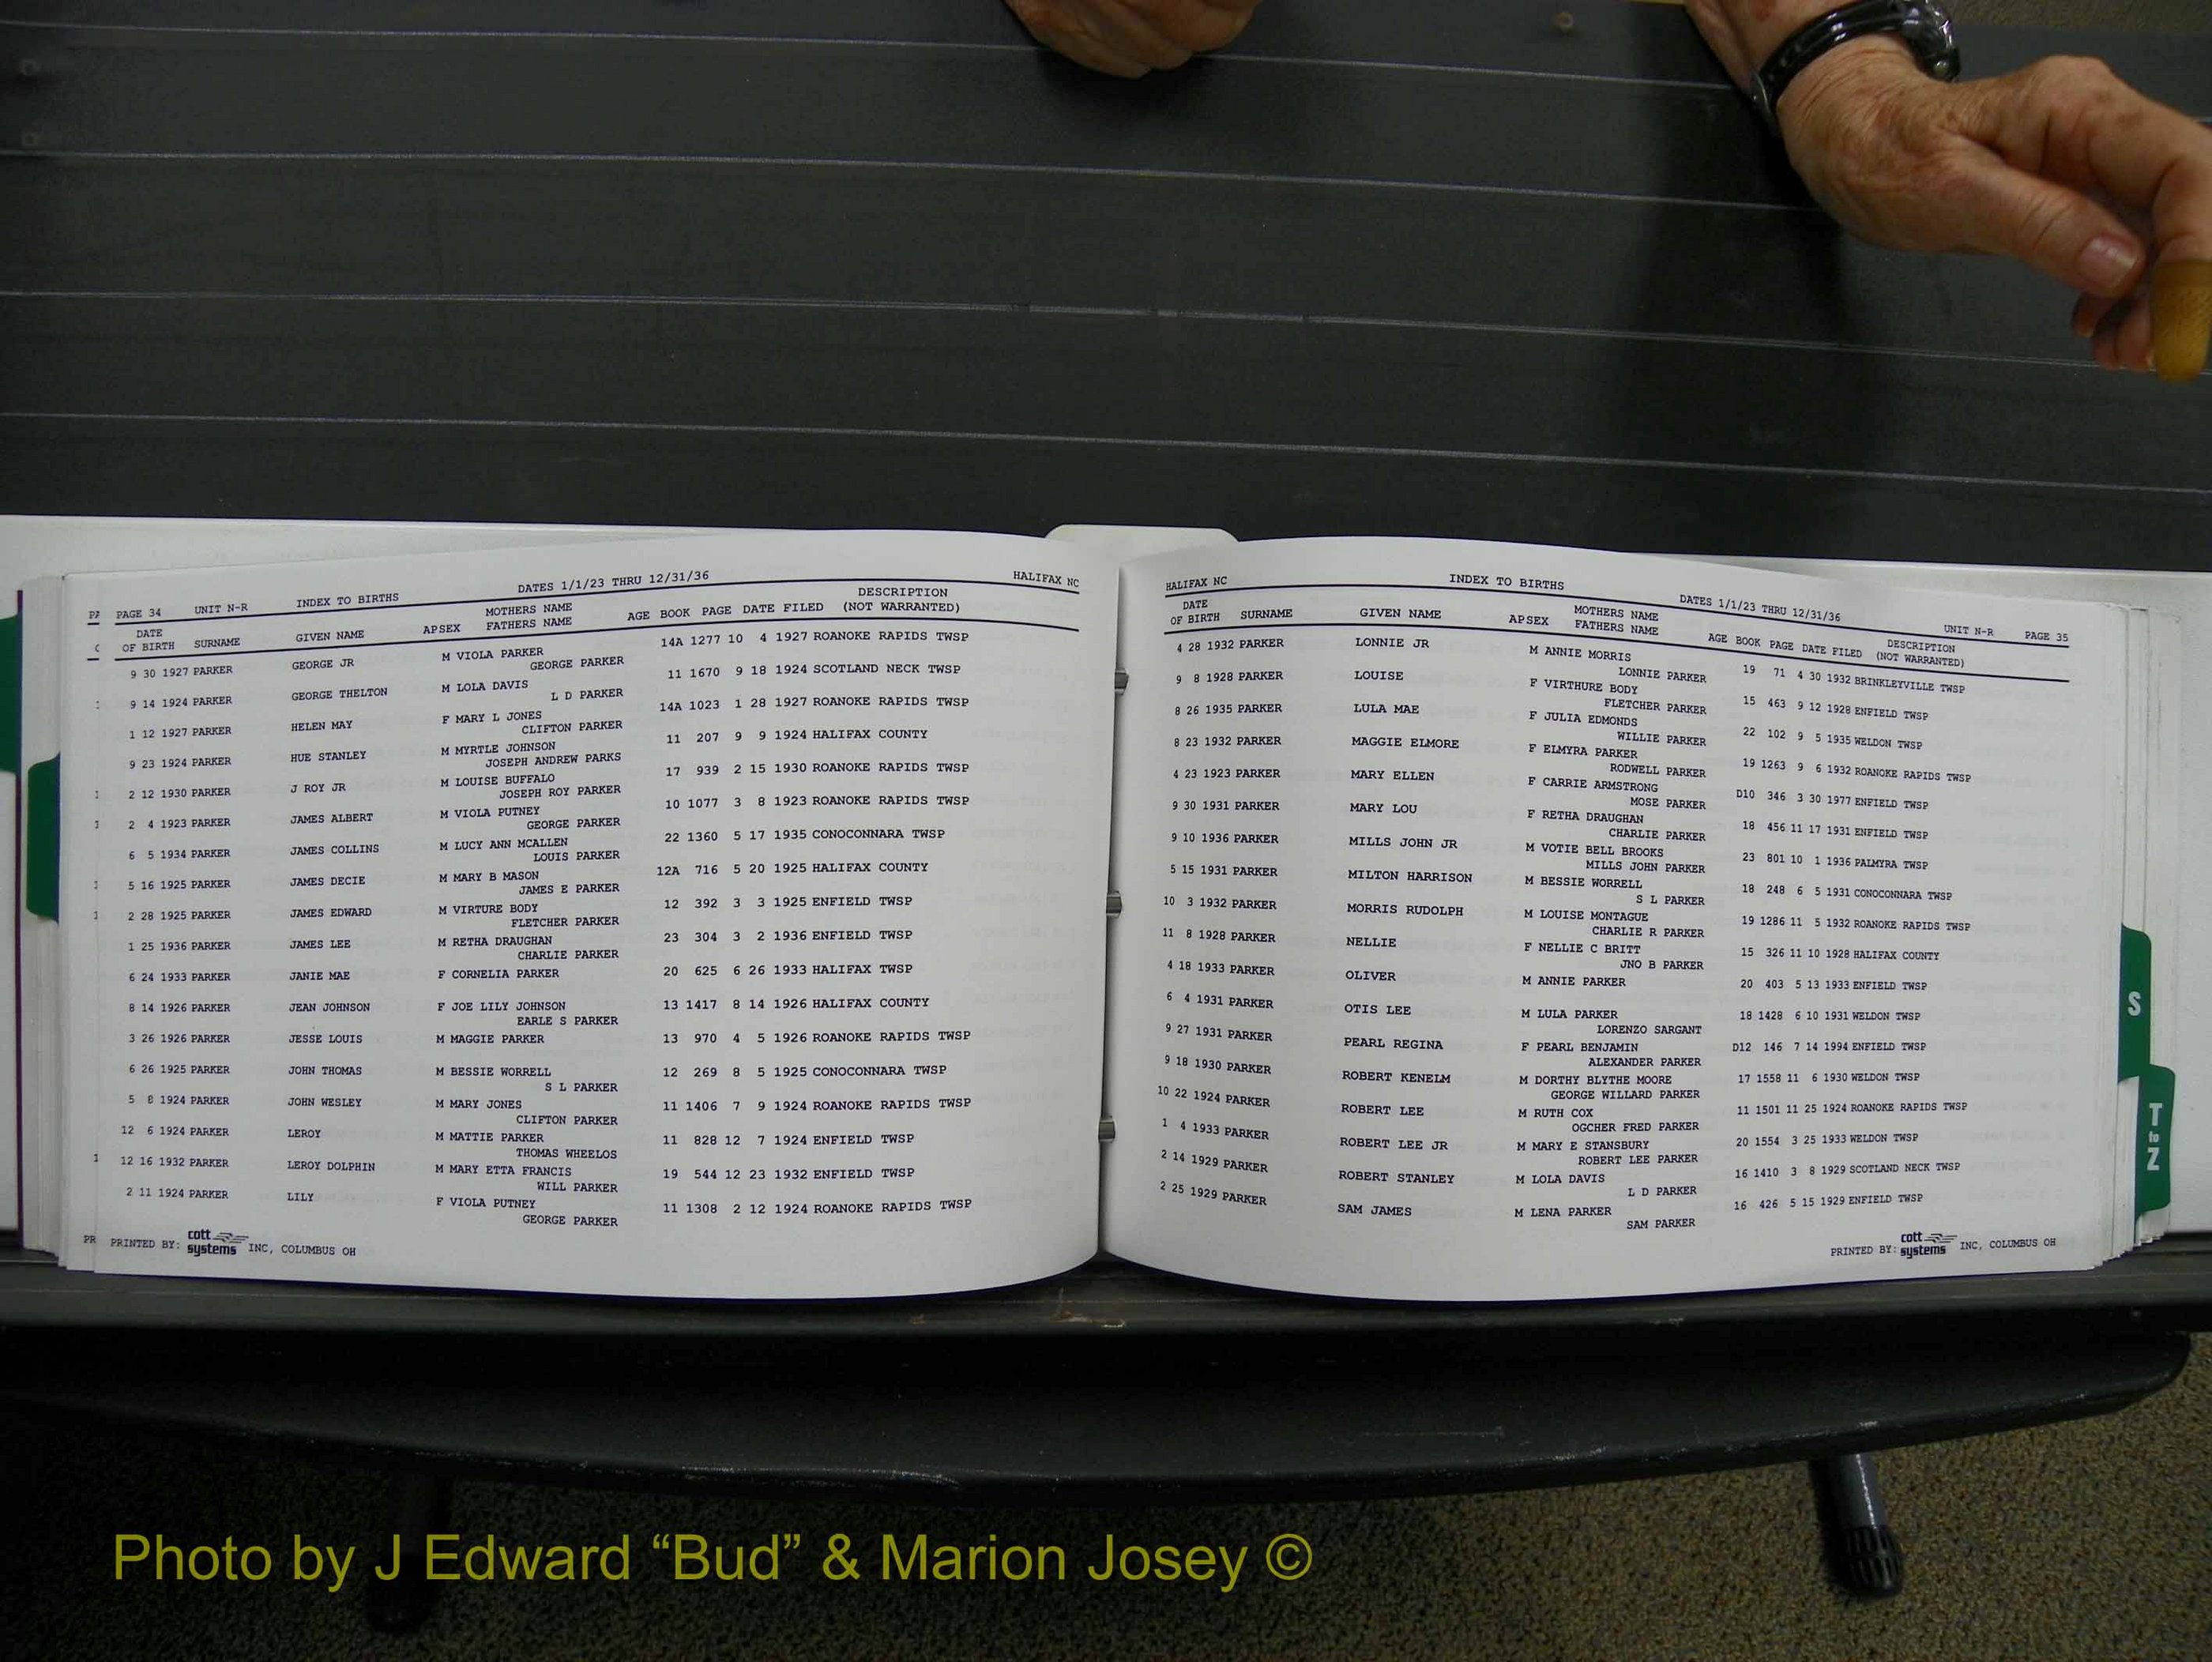 PAGE 34 UNIT N-R INDEX TO BIRTHS DATES 1/1/23 THRU 12/31/36 HALIFAX NC
DATE OF BIRTH SURNAME GIVEN NAME APSEX MOTHERS NAME FATHERS NAME AGE BOOK PAGE DATE FILED DESCRIPTION (NOT WARRANTED)
9 30 1927 PARKER GEORGE JR M VIOLA PARKER 14A 1277 10 4 1927 ROANOKE RAPIDS TWSP
GEORGE PARKER
9 14 1924 PARKER GEORGE THELTON M LOLA DAVIS 11 1670 9 18 1924 SCOTLAND NECK TWSP
L D PARKER
1 12 1927 PARKER HELEN MAY F MARY L JONES 14A 1023 1 28 1927 ROANOKE RAPIDS TWSP
CLIFTON PARKER
9 23 1924 PARKER HUE STANLEY M MYRTLE JOHNSON 11 207 9 9 1924 HALIFAX COUNTY
JOSEPH ANDREW PARKS
2 12 1930 PARKER J ROY JR M LOUISE BUFFALO 17 939 2 15 1930 ROANOKE RAPIDS TWSP
JOSEPH ROY PARKER
2 4 1923 PARKER JAMES ALBERT M VIOLA PUTNEY 10 1077 3 8 1923 ROANOKE RAPIDS TWSP
GEORGE PARKER
6 5 1934 PARKER JAMES COLLINS M LUCY ANN MCALLEN 22 1360 5 17 1935 CONOCONNARA TWSP
LOUIS PARKER
5 16 1925 PARKER JAMES DECIE M MARY B MASON 12A 716 5 20 1925 HALIFAX COUNTY
JAMES E PARKER
2 28 1925 PARKER JAMES EDWARD M VIRTURE BODY 12 392 3 3 1925 ENFIELD TWSP
FLETCHER PARKER
1 25 1936 PARKER JAMES LEE M RETHA DRAUGHAN 23 304 3 2 1936 ENFIELD TWSP
CHARLIE PARKER
6 24 1933 PARKER JANIE MAE F CORNELIA PARKER 20 625 6 26 1933 HALIFAX TWSP
8 14 1926 PARKER JEAN JOHNSON F JOE LILY JOHNSON 13 1417 8 14 1926 HALIFAX COUNTY
EARLE S PARKER
3 26 1926 PARKER JESSE LOUIS M MAGGIE PARKER 13 970 4 5 1926 ROANOKE RAPIDS TWSP
6 26 1925 PARKER JOHN THOMAS M BESSIE WORRELL 12 269 8 5 1925 CONOCONNARA TWSP
S L PARKER
5 8 1924 PARKER JOHN WESLEY M MARY JONES 11 1406 7 9 1924 ROANOKE RAPIDS TWSP
CLIFTON PARKER
12 6 1924 PARKER LEROY M MATTIE PARKER 11 828 12 7 1924 ENFIELD TWSP
THOMAS WHEELOS
12 16 1932 PARKER LEROY DOLPHIN M MARY ETTA FRANCIS 19 544 12 23 1932 ENFIELD TWSP
WILL PARKER
2 11 1924 PARKER LILY F VIOLA PUTNEY 11 1308 2 12 1924 ROANOKE RAPIDS TWSP
GEORGE PARKER
PRINTED BY: cott systems INC, COLUMBUS OH
HALIFAX NC INDEX TO BIRTHS DATES 1/1/23 THRU 12/31/36 UNIT N-R PAGE 35
DATE OF BIRTH SURNAME GIVEN NAME APSEX MOTHERS NAME FATHERS NAME AGE BOOK PAGE DATE FILED DESCRIPTION (NOT WARRANTED)
4 28 1932 PARKER LONNIE JR M ANNIE MORRIS 19 71 4 30 1932 BRINKLEYVILLE TWSP
LONNIE PARKER
9 8 1928 PARKER LOUISE F VIRTHURE BODY 15 463 9 12 1928 ENFIELD TWSP
FLETCHER PARKER
8 26 1935 PARKER LULA MAE F JULIA EDMONDS 22 102 9 5 1935 WELDON TWSP
WILLIE PARKER
8 23 1932 PARKER MAGGIE ELMORE F ELMYRA PARKER 19 1263 9 6 1932 ROANOKE RAPIDS TWSP
RODWELL PARKER
4 23 1923 PARKER MARY ELLEN F CARRIE ARMSTRONG D10 346 3 30 1977 ENFIELD TWSP
MOSE PARKER
9 30 1931 PARKER MARY LOU F RETHA DRAUGHAN 18 456 11 17 1931 ENFIELD TWSP
CHARLIE PARKER
9 10 1936 PARKER MILLS JOHN JR M VOTIE BELL BROOKS 23 801 10 1 1936 PALMYRA TWSP
MILLS JOHN PARKER
5 15 1931 PARKER MILTON HARRISON M BESSIE WORRELL 18 248 6 5 1931 CONOCONNARA TWSP
S L PARKER
10 3 1932 PARKER MORRIS RUDOLPH M LOUISE MONTAGUE 19 1286 11 5 1932 ROANOKE RAPIDS TWSP
CHARLIE R PARKER
11 8 1928 PARKER NELLIE F NELLIE C BRITT 15 326 11 10 1928 HALIFAX COUNTY
JNO B PARKER
4 18 1933 PARKER OLIVER M ANNIE PARKER 20 403 5 13 1933 ENFIELD TWSP
6 4 1931 PARKER OTIS LEE M LULA PARKER 18 1428 6 10 1931 WELDON TWSP
LORENZO SARGANT
9 27 1931 PARKER PEARL REGINA F PEARL BENJAMIN D12 146 7 14 1994 ENFIELD TWSP
ALEXANDER PARKER
9 18 1930 PARKER ROBERT KENELM M DORTHY BLYTHE MOORE 17 1558 11 6 1930 WELDON TWSP
GEORGE WILLARD PARKER
10 22 1924 PARKER ROBERT LEE M RUTH COX 11 1501 11 25 1924 ROANOKE RAPIDS TWSP
OGCHER FRED PARKER
1 4 1933 PARKER ROBERT LEE JR M MARY E STANSBURY 20 1554 3 25 1933 WELDON TWSP
ROBERT LEE PARKER
2 14 1929 PARKER ROBERT STANLEY M LOLA DAVIS 16 1410 3 8 1929 SCOTLAND NECK TWSP
L D PARKER
2 25 1929 PARKER SAM JAMES M LENA PARKER 16 426 5 15 1929 ENFIELD TWSP
SAM PARKER
PRINTED BY: cott systems INC, COLUMBUS OH
S
T to Z
Photo by J Edward “Bud” & Marion Josey ©